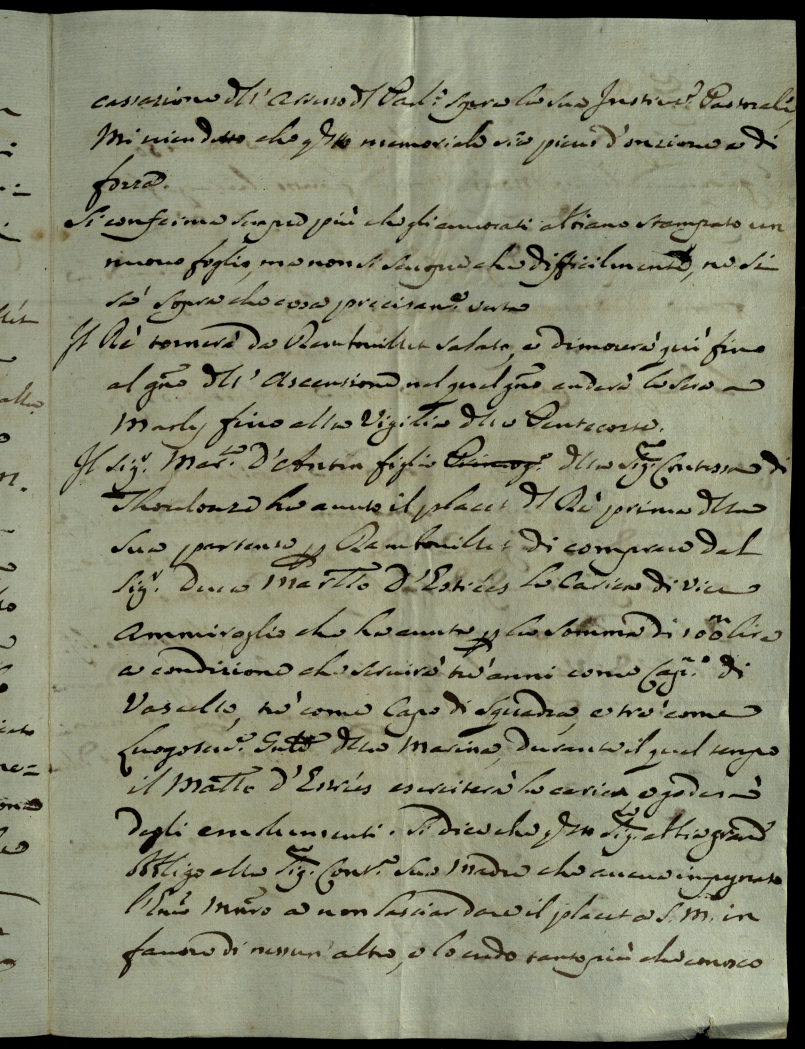 cassazione dell' Arresto del Parl.º sopra la sua Instruz.e Pastorale,
Mi vien detto che q.sto memoriale sia pieno d'unzione e di
forza.
Si conferma sempre più che gli avvocati abbiano stampato un
nuovo foglio, ma non si scuopre che difficilmente, ne si
sà sopra che cosa precisam.e verta
Il Rè tornerà da Rambouillet sabato, e dimorerà quì fino
al gno dell' Ascensione nel qual gno anderà la sera a
Marly fino alla Vigilia della Pentecoste.
Il Sig.r Mar.se D'Antin figlio Primog.o della Sig.ra Contessa di
Thoulouze ha avuto il placet del Rè prima della
sua partenza p Rambouillet di comprare dal
Sig.r Duca Mar.llo D'Estrées la Carica di Vice
Ammiraglio che ha avuta p la somma di 100m lire
a condizione che servirà trè anni come Cap.no di
Vascello, trè come Capo di Squadra, e trè come
Luogoten.e Gñle della Marina, durante il qual tempo
il Mãllo d'Estrées eserciterà la carica e goderà
degli emolumenti. Si dice che q.sto Sig.re abbia grand'
obbligo alla Sig.ra Cont.a sua Madre che aveva impegnato
l'Emo Mñro a non lasciar dare il placet a S.M. in
favore di nessun' altro, e lo credo tanto più che conosco